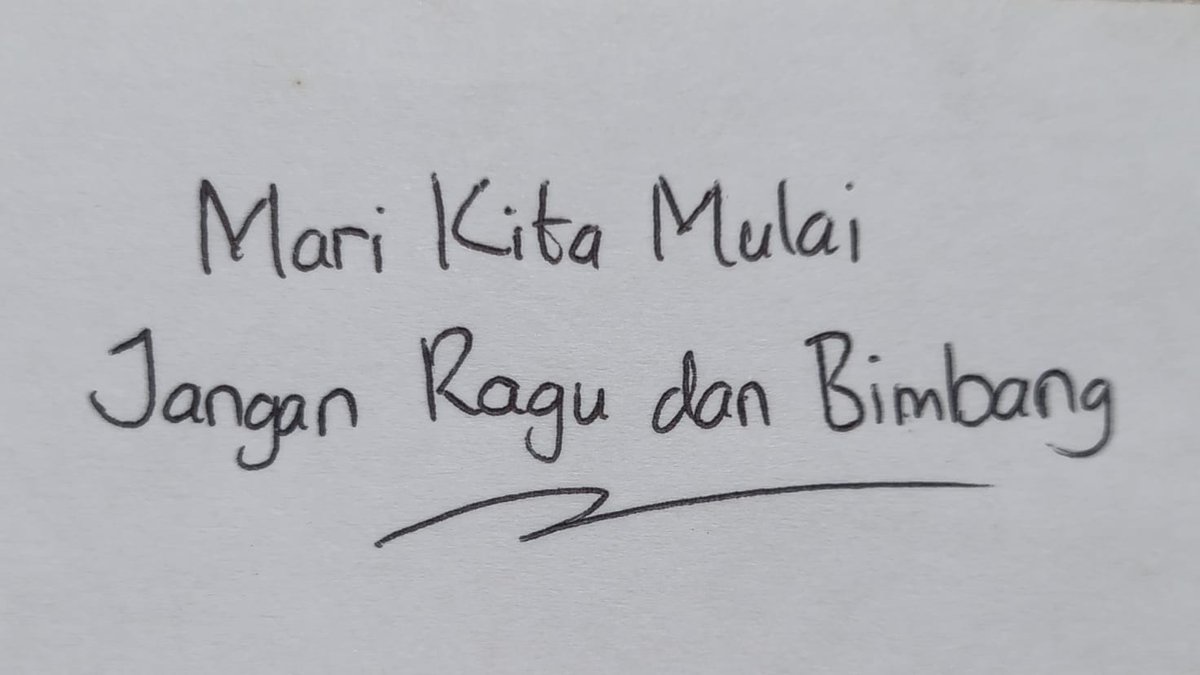 Mari Kita Mulai
Jangan Ragu dan Bimbang